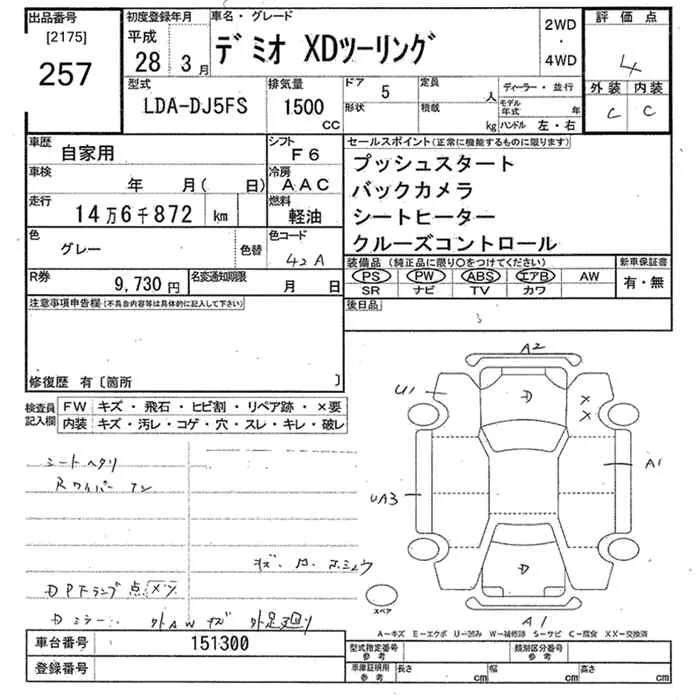 出品番号
[2175]
257
初度登録年月
平成
28 3月
車名・グレード
デミオ XDツーリング
2WD
・
4WD
評価点
4
外装 内装
C C
型式
LDA-DJ5FS
排気量
1500
CC
ドア 5
形状
定員 人
積載 kg
ディーラー・並行
モデル年式 年
ハンドル 左・右
車歴
自家用
シフト
F6
車検
年 月( 日)
冷房
AAC
走行
14万6千872 km
燃料
軽油
色
グレー
色替
色コード
42A
R券
9,730円
名変通知期限
月 日
セールスポイント(正常に機能するものに限ります)
プッシュスタート
バックカメラ
シートヒーター
クルーズコントロール
装備品(純正品に限り○をつけてください)
PS PW ABS エアB AW
SR ナビ TV カワ
新車保証書
有・無
後日品
注意事項申告欄(不具合内容等は具体的に記入して下さい)
修復歴 有〔箇所 〕
検査員
記入欄
FW キズ・飛石・ヒビ割・リペア跡・×要
内装 キズ・汚レ・コゲ・穴・スレ・キレ・破レ
シートヘタリ
Rワイパー ナシ
DPFランプ点
Dミラー
外AWキズ 外足廻り
A2
U1
D
×
×
UA3
A1
D
A1
スペア
A-キズ E-エクボ U-凹み W-補修跡 S-サビ C-腐食 XX-交換済
車台番号
151300
登録番号
型式指定番号
参考
類別区分番号
参考
車庫証明用
参考
長さ cm
幅 cm
高さ cm